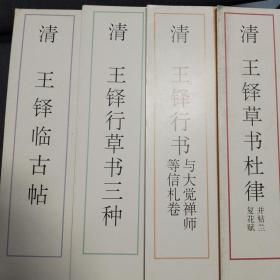 清
王铎临古帖
清
王铎行草书三种
清
王铎行书
与大觉禅师
等信札卷
清
王铎草书杜律
并帖兰
复花赋